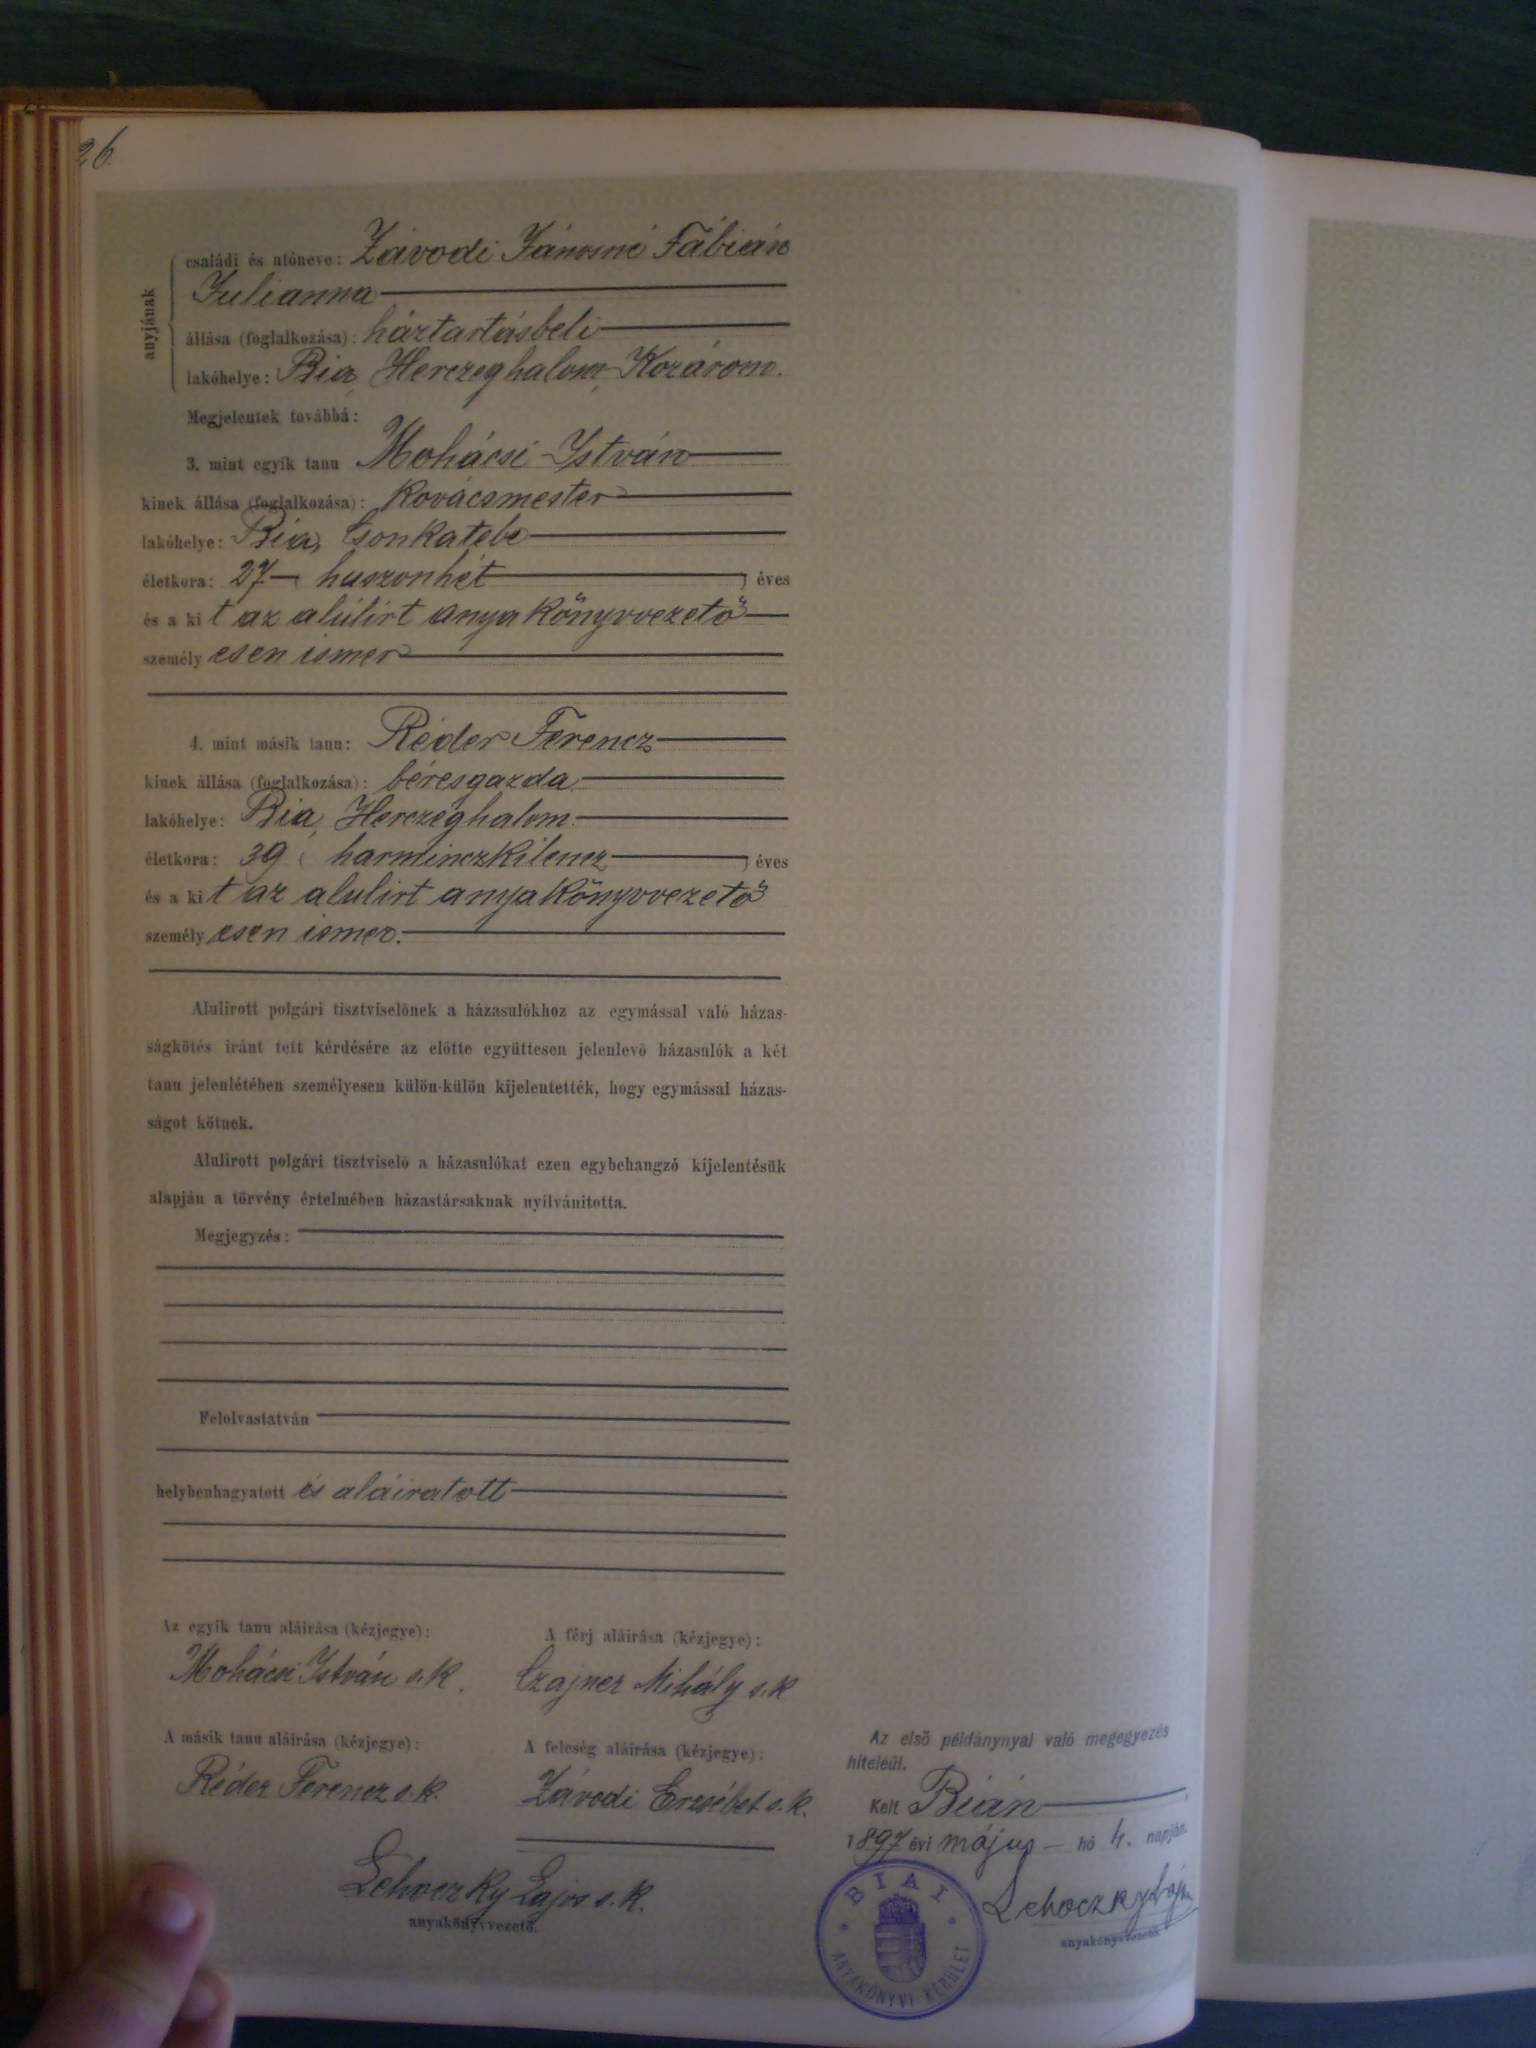 26.
anyjának
családi és utóneve: Závodi Jánosné Fábián
Julianna
állása (foglalkozása): háztartásbeli
lakóhelye: Bia, Herczeghalom, Kozárom.
Megjelentek továbbá:
3. mint egyik tanu Mohácsi István
kinek állása (foglalkozása): kovácsmester
lakóhelye: Bia, Csonkatebe
életkora: 27 huszonhét, éves
és a kit az alúlirt anyakönyvvezető
személyesen ismer
4. mint másik tanu: Réder Ferencz
kinek állása (foglalkozása): béresgazda
lakóhelye: Bia, Herczeghalom.
életkora: 39 ( harminczkilencz, éves
és a kit az alulirt anyakönyvvezető
személyesen ismer.
Alulirott polgári tisztviselőnek a házasulókhoz az egymással való házas-
ságkötés iránt tett kérdésére az előtte együttesen jelenlevő házasulók a két
tanu jelenlétében személyesen külön-külön kijelentették, hogy egymással házas-
ságot kötnek.
Alulirott polgári tisztviselő a házasulókat ezen egybehangzó kijelentésük
alapján a törvény értelmében házastársaknak nyilvánította.
Megjegyzés:
Felolvastatván
helybenhagyatott és aláiratott
Az egyik tanu aláirása (kézjegye):
Mohácsi István s.k.
A férj aláirása (kézjegye):
Czajner Mihály s.k
A másik tanu aláirása (kézjegye):
Réder Ferencz s.k.
A feleség aláirása (kézjegye):
Závodi Erzsébet s.k.
Lehoczky Lajos s.k.
anyakönyvvezető.
Az első példánynyal való megegyezés
hiteléül.
Kelt Bián
1897 évi május hó 4. napján.
Lehoczky Lajos
anyakönyvvezető.
BIAI
ANYAKÖNYVI KERÜLET